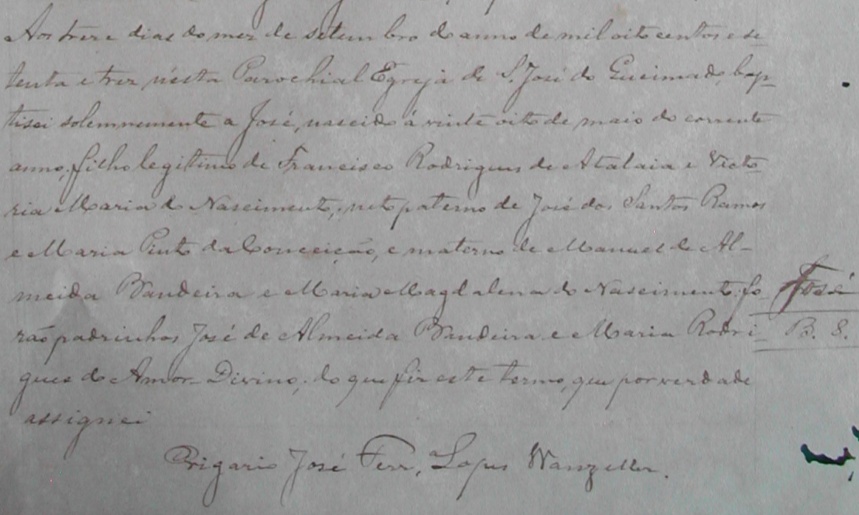 Aos treze dias do mez de setembro do anno de mil oito centos e se-
tenta e trez n'esta Parochial Egreja de S. José do Queimado, bap-
tisei solemnemente a José, nascido á vinte oito de maio do corrente
anno, filho legitimo de Francisco Rodrigues de Atalaia e Victo-
ria Maria do Nascimento, neto paterno de José dos Santos Ramos
e Maria Pinto da Conceição, e materno de Manuel de Al-
meida Bandeira e Maria Magdalena do Nascimento; fo-
José
rão padrinhos José de Almeida Bandeira e Maria Rodri-
B. S.
gues do Amor-Divino; do que fiz este termo, que por verdade
assignei
José Ferr. Lopes Wanzeller.